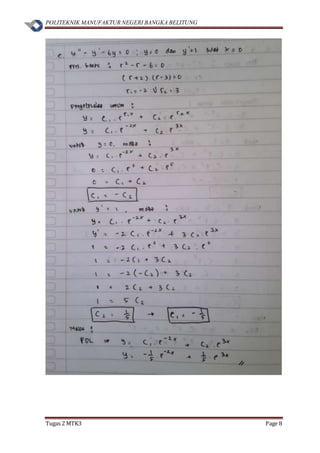 POLITEKNIK MANUFAKTUR NEGERI BANGKA BELITUNG
e. y'' - y' - 6y = 0 ; y=0 dan y'=1 buat x = 0
Pers. bantu : r² - r - 6 = 0
(r+2) (r-3) = 0
r₁ = -2 V r₂ = 3
Penyelesaian umum :
y = C₁ . e^r₁x + C₂ . e^r₂x
y = C₁ . e^-2x + C₂ e^3x
untuk y=0, maka :
y = C₁ . e^-2x + C₂ . e^3x
0 = C₁ . e⁰ + C₂ . e⁰
0 = C₁ + C₂
C₁ = - C₂
untuk y' = 1 , maka :
y = C₁ . e^-2x + C₂ . e^3x
y' = -2 C₁ . e^-2x + 3 C₂ . e^3x
1 = -2 C₁ . e⁰ + 3 C₂ . e⁰
1 = -2C₁ + 3C₂
1 = -2(-C₂) + 3 C₂
1 = 2C₂ + 3C₂
1 = 5 C₂
C₂ = 1/5 → C₁ = - 1/5
Maka :
PDL ⇒ y = C₁ . e^-2x + C₂ . e^3x
y = - 1/5 e^-2x + 1/5 . e^3x //
Tugas 2 MTK3 Page 8